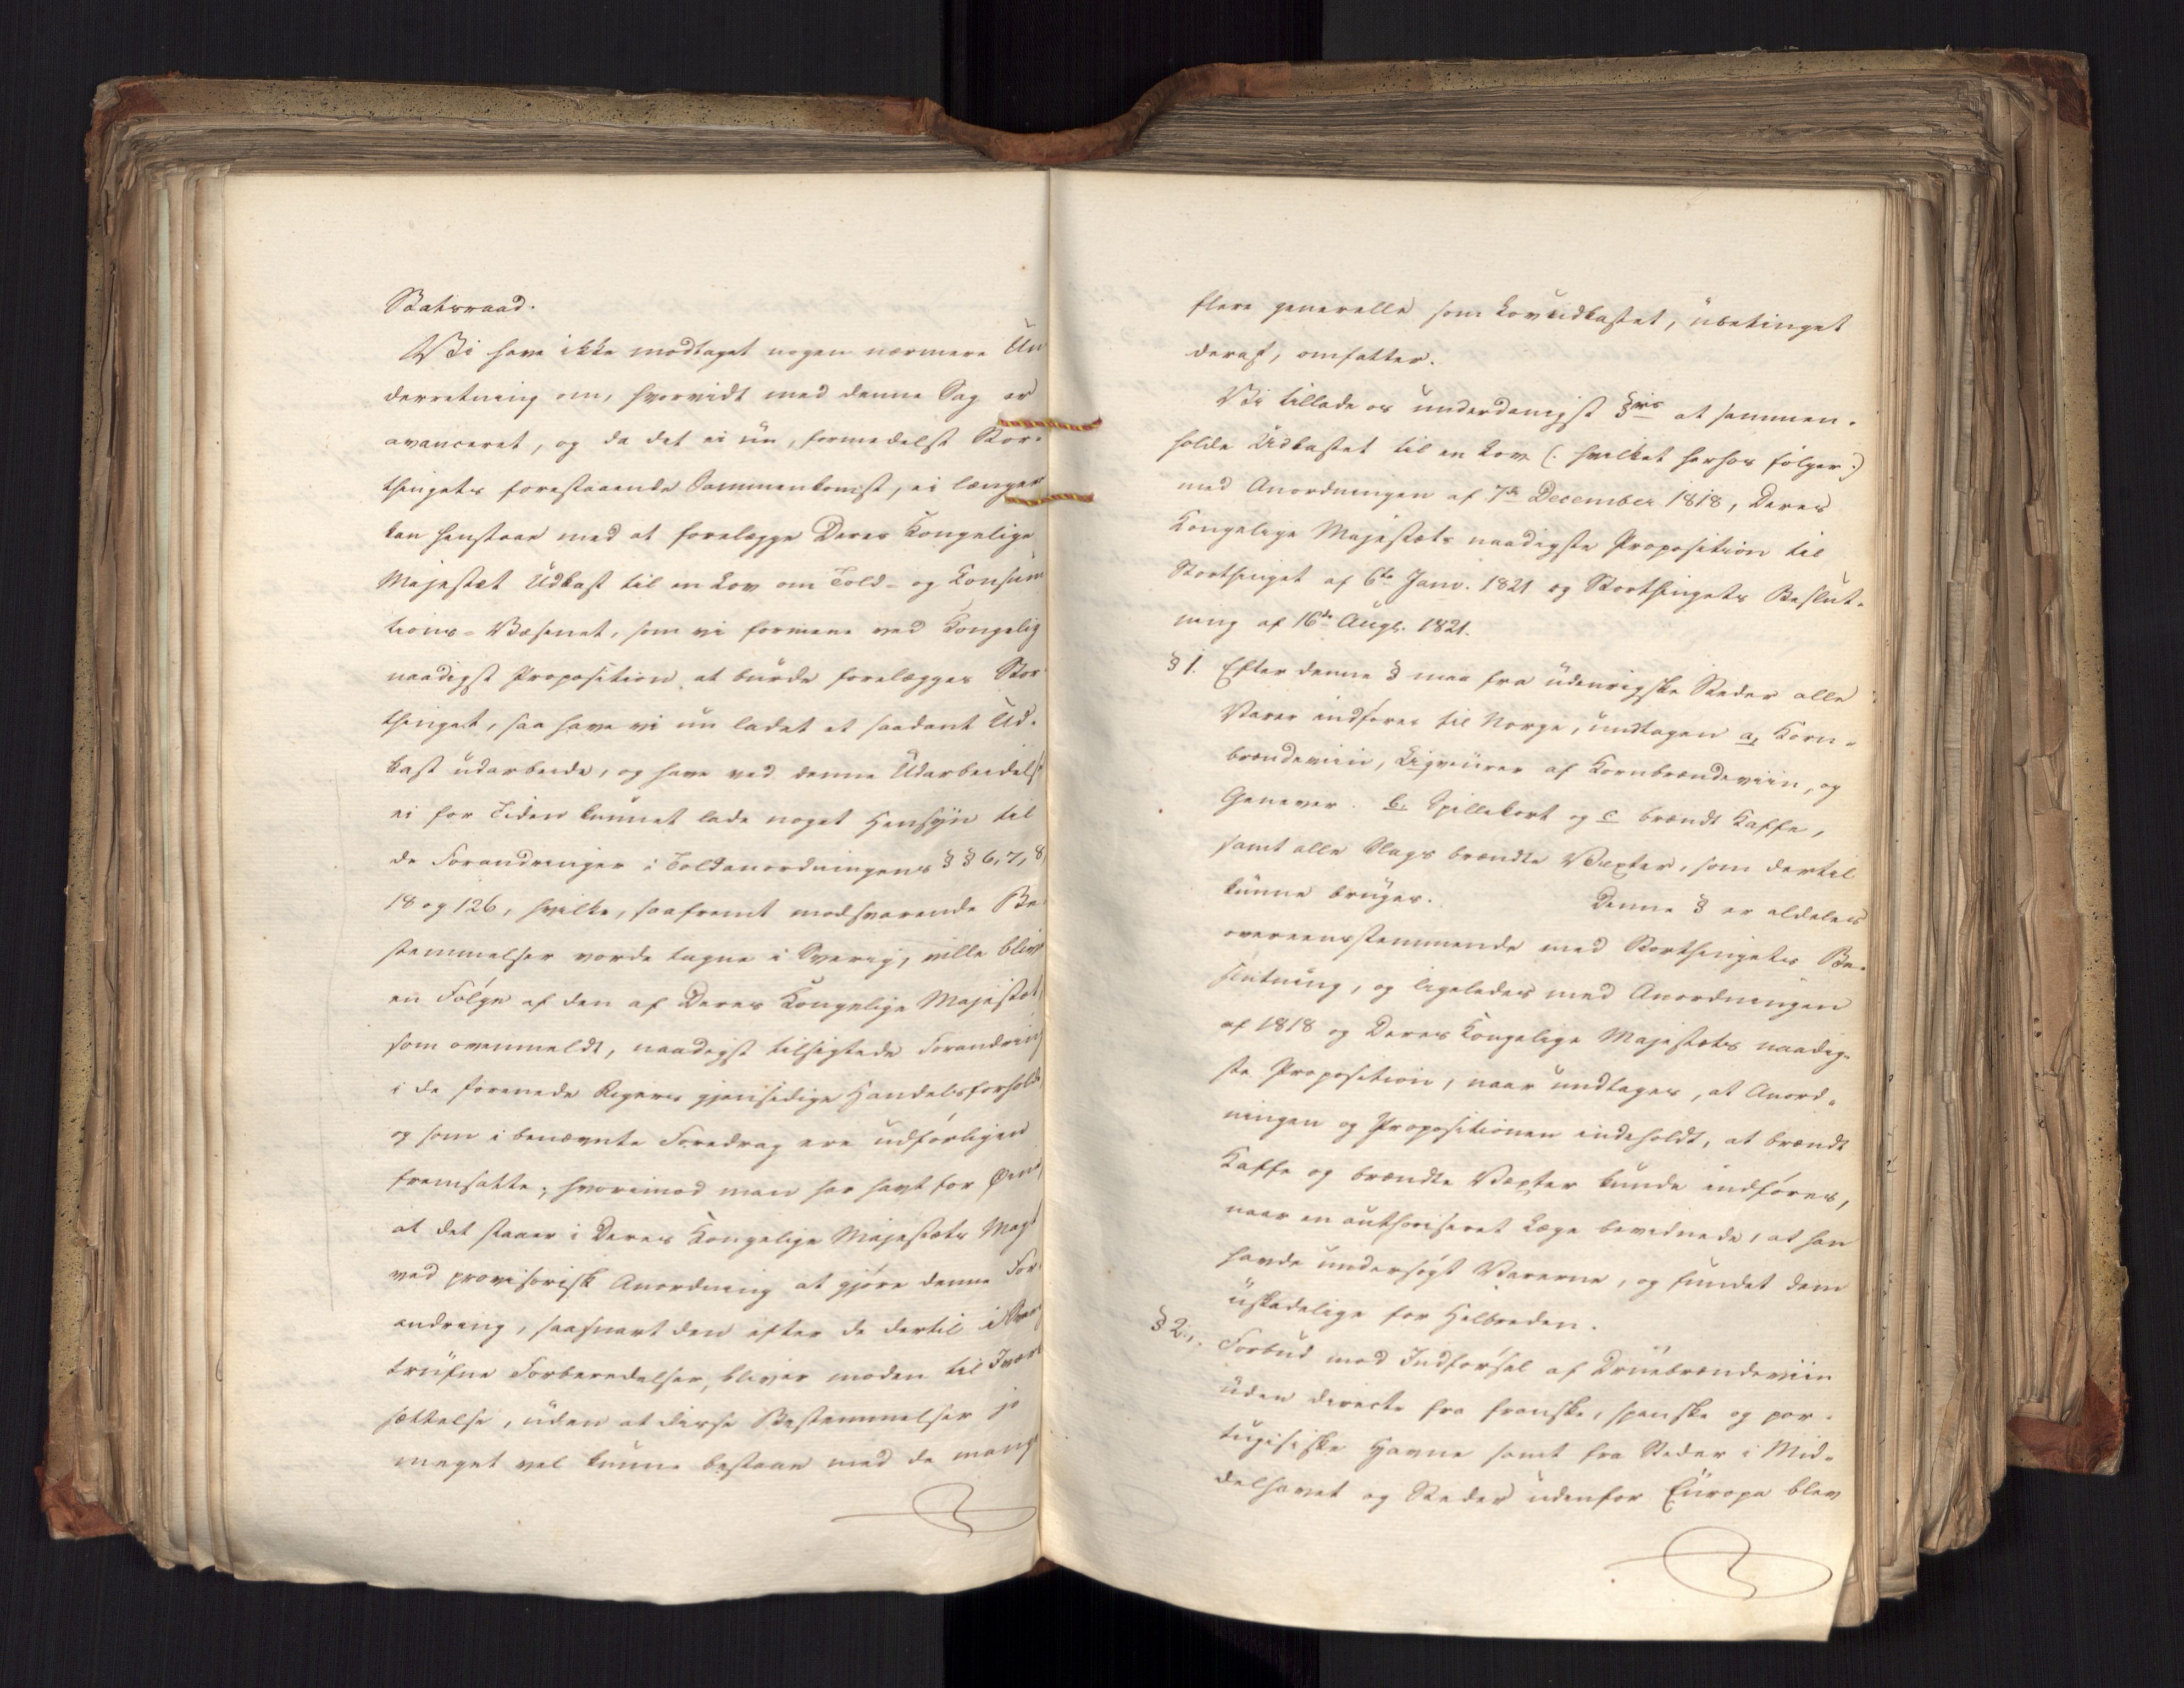 Statsraad.
Vi have ikke modtaget nogen nærmere Un
derretning om, hvorvidt med denne Sag er
avanceret, og da det ei nu, formedelst Stor-
thingets forestaaende Sammenkomst, ei længer
kan henstaae med at forelægge Deres Kongelige
Majestæt Udkast til en Lov om Told- og Consum
tions-Væsenet, som vi formene ved Kongelig
naadigst Proposition at burde forelægges Stor
thinget, saa have vi nu ladet et saadant Ud-
kast udarbeide, og have ved denne Udarbeidelse
ei for Tiden kunnet lade noget Hensyn til
de Forandringer i Toldanordningens §§ 6, 7, 8
18 og 126, hvilke, saafremt modsvarende Be
stemmelser vorde tagne i Sverig, ville blive
en Følge af den af Deres Kongelige Majestæt,
som ovenmeldt, naadigst tilsigtede Forandring
i de forenede Rigers gjensidige Handelsforhold
og som i benævnte Foredrag ere udførligen
fremsatte; hvorimod man har havt for Øine
at det staaer i Deres Kongelige Majestæts Magt
ved provisorisk Anordning at gjøre denne For
andring, saasnart den efter de dertil i Sverig
trufne Forberedelser, bliver moden til Iværk
sættelse, uden at disse Bestemmelser jo
meget vel kunne bestaae med de mange
flere generelle som Lovudkastet, ubetinget
deraf, omfatter.
Vi tillade os underdanigst §vis at sammen-
holde Udkastet til en Lov (: hvilket herhos følger :)
med Anordningen af 7de December 1818, Deres
Kongelige Majestæts naadigste Proposition til
Storthinget af 6te Janv. 1821 og Storthingets Beslut-
ning af 16de Augs. 1821.
§ 1. Efter denne § maa fra udenrigske Steder alle
Varer indføres til Norge, undtagen a, Korn-
brændeviin, Liqveurer af Kornbrændeviin, og
Genever. b, Spillekort og c brændt Kaffe,
samt alle Slags brændte Væxter, som dertil
kunne bruges. Denne § er aldeles
overeensstemmende med Storthingets Be-
slutning, og ligeledes med Anordningen
af 1818 og Deres Kongelige Majestæts naadig-
ste Proposition, naar undtages, at Anord-
ningen og Propositionen indeholdt, at brændt
Kaffe og brændte Væxter kunde indføres,
naar en authoriseret Læge bevidnede, at han
havde undersøgt Varerne, og fundet dem
uskadelige for Helbreden.
§ 2. Forbud mod Indførsel af Druebrændeviin
uden directe fra franske, spanske og por-
tugisiske Havne samt fra Steder i Mid-
delhavet og Steder udenfor Europa blev